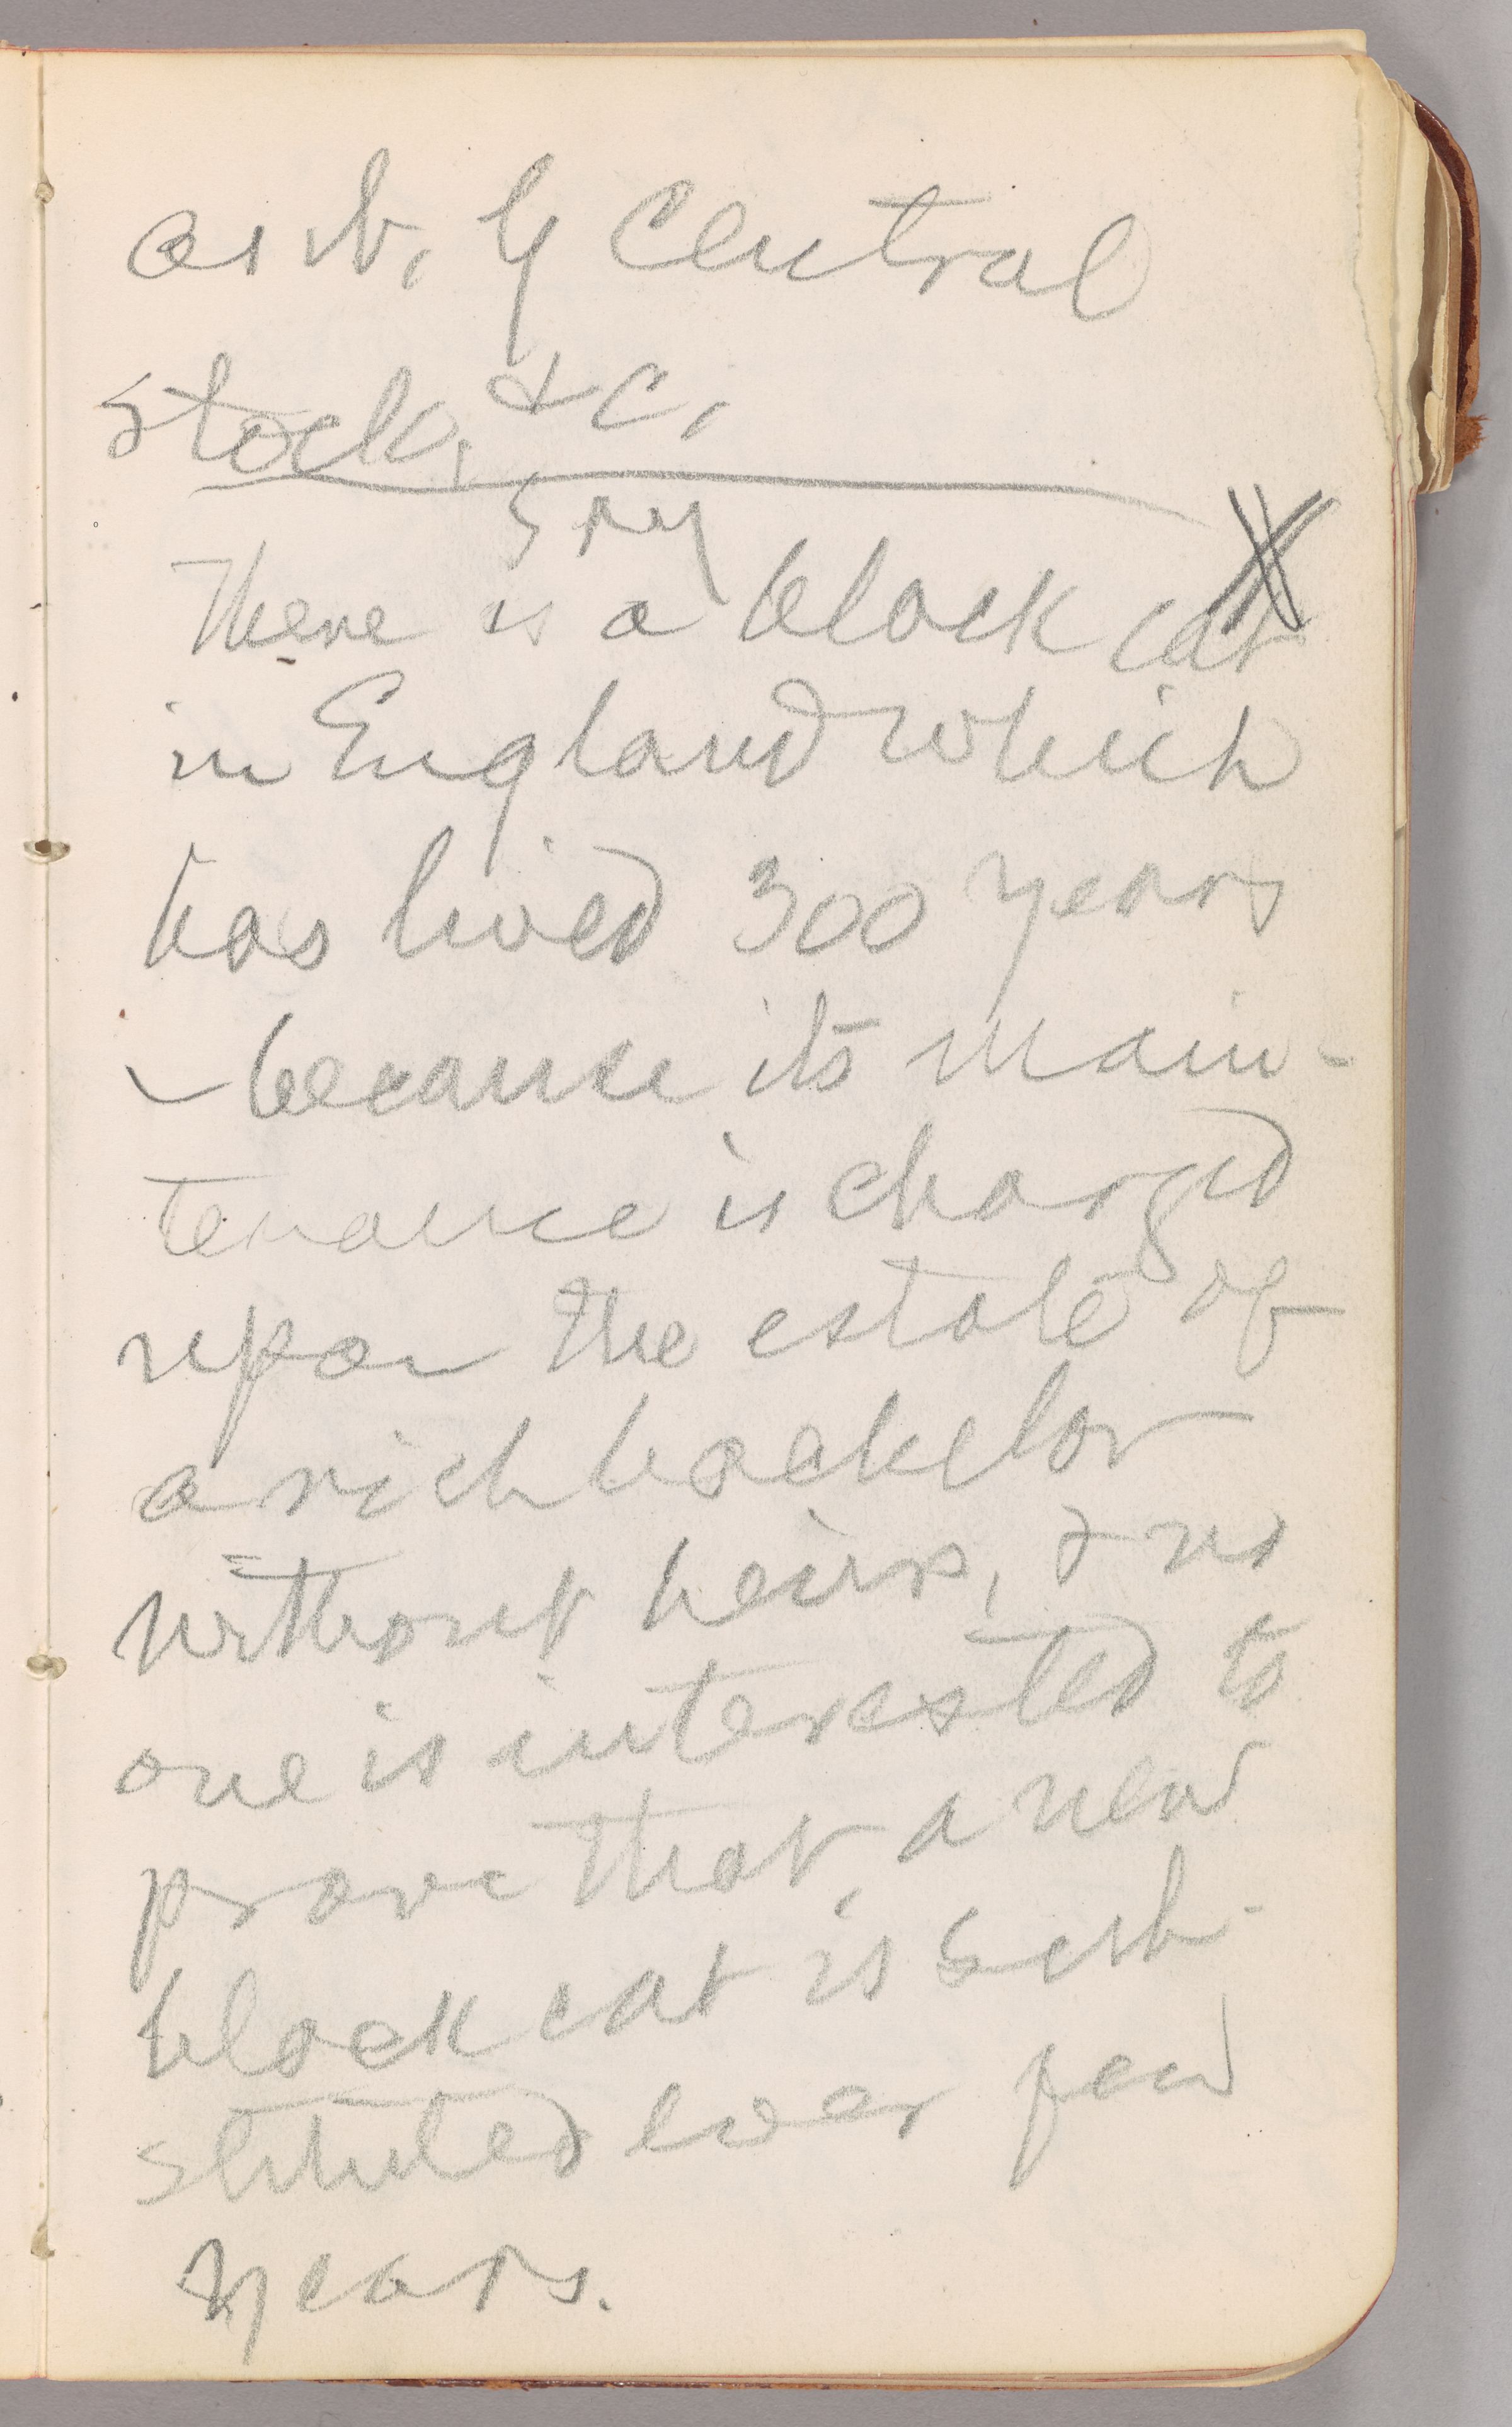 as N. Y Central
stock, &c.
Spy
There is a black cat
in England which
has lived 300 years
– because its main-
tenance is charged
upon the estate of
a rich bachelor
without heirs, & no
one is interested to
prove that a new
black cat is sub-
stituted ever few
years.